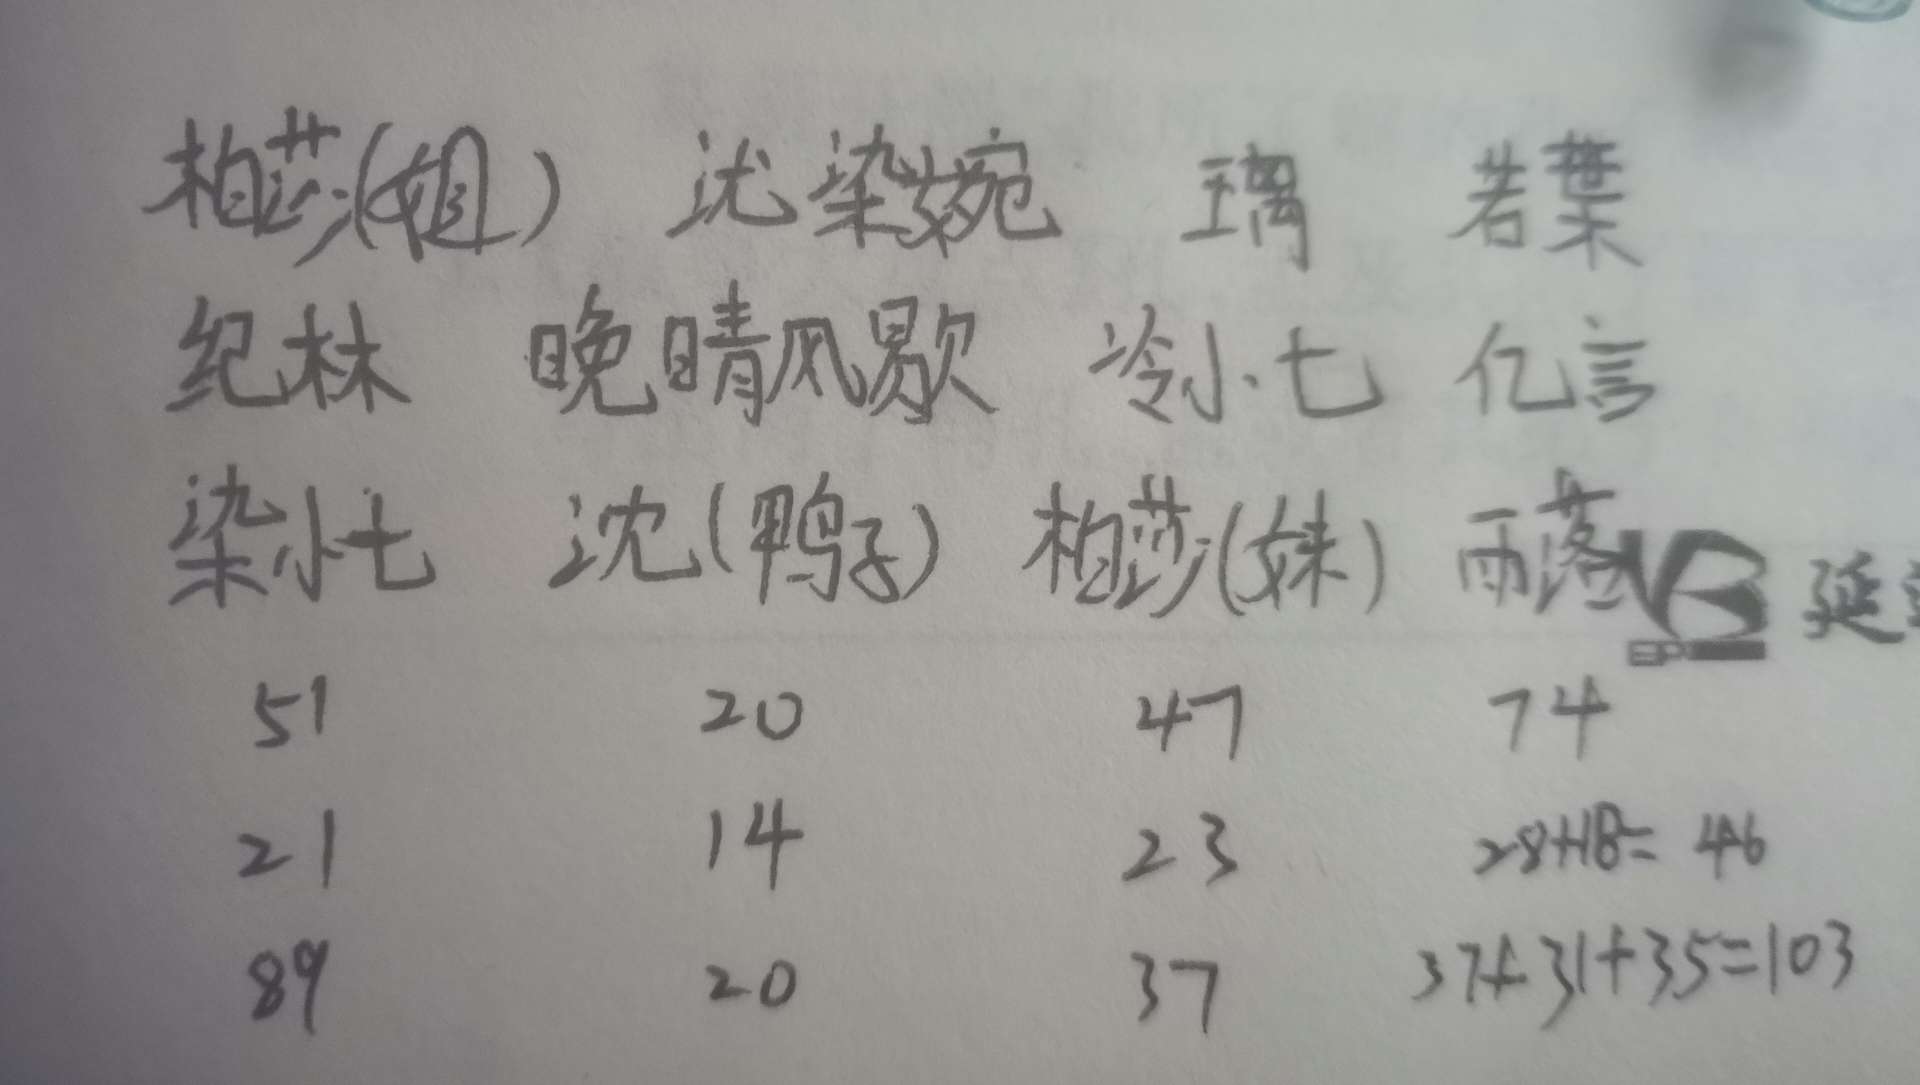 柏莎(姐) 沈染婉 璃 若葉
纪林 晚晴风歇 冷小七 亿言
染小七 沈(鸭子) 柏莎(妹) 雨落
延
51 20 47 74
21 14 23 28+18=46
89 20 37 37+31+35=103